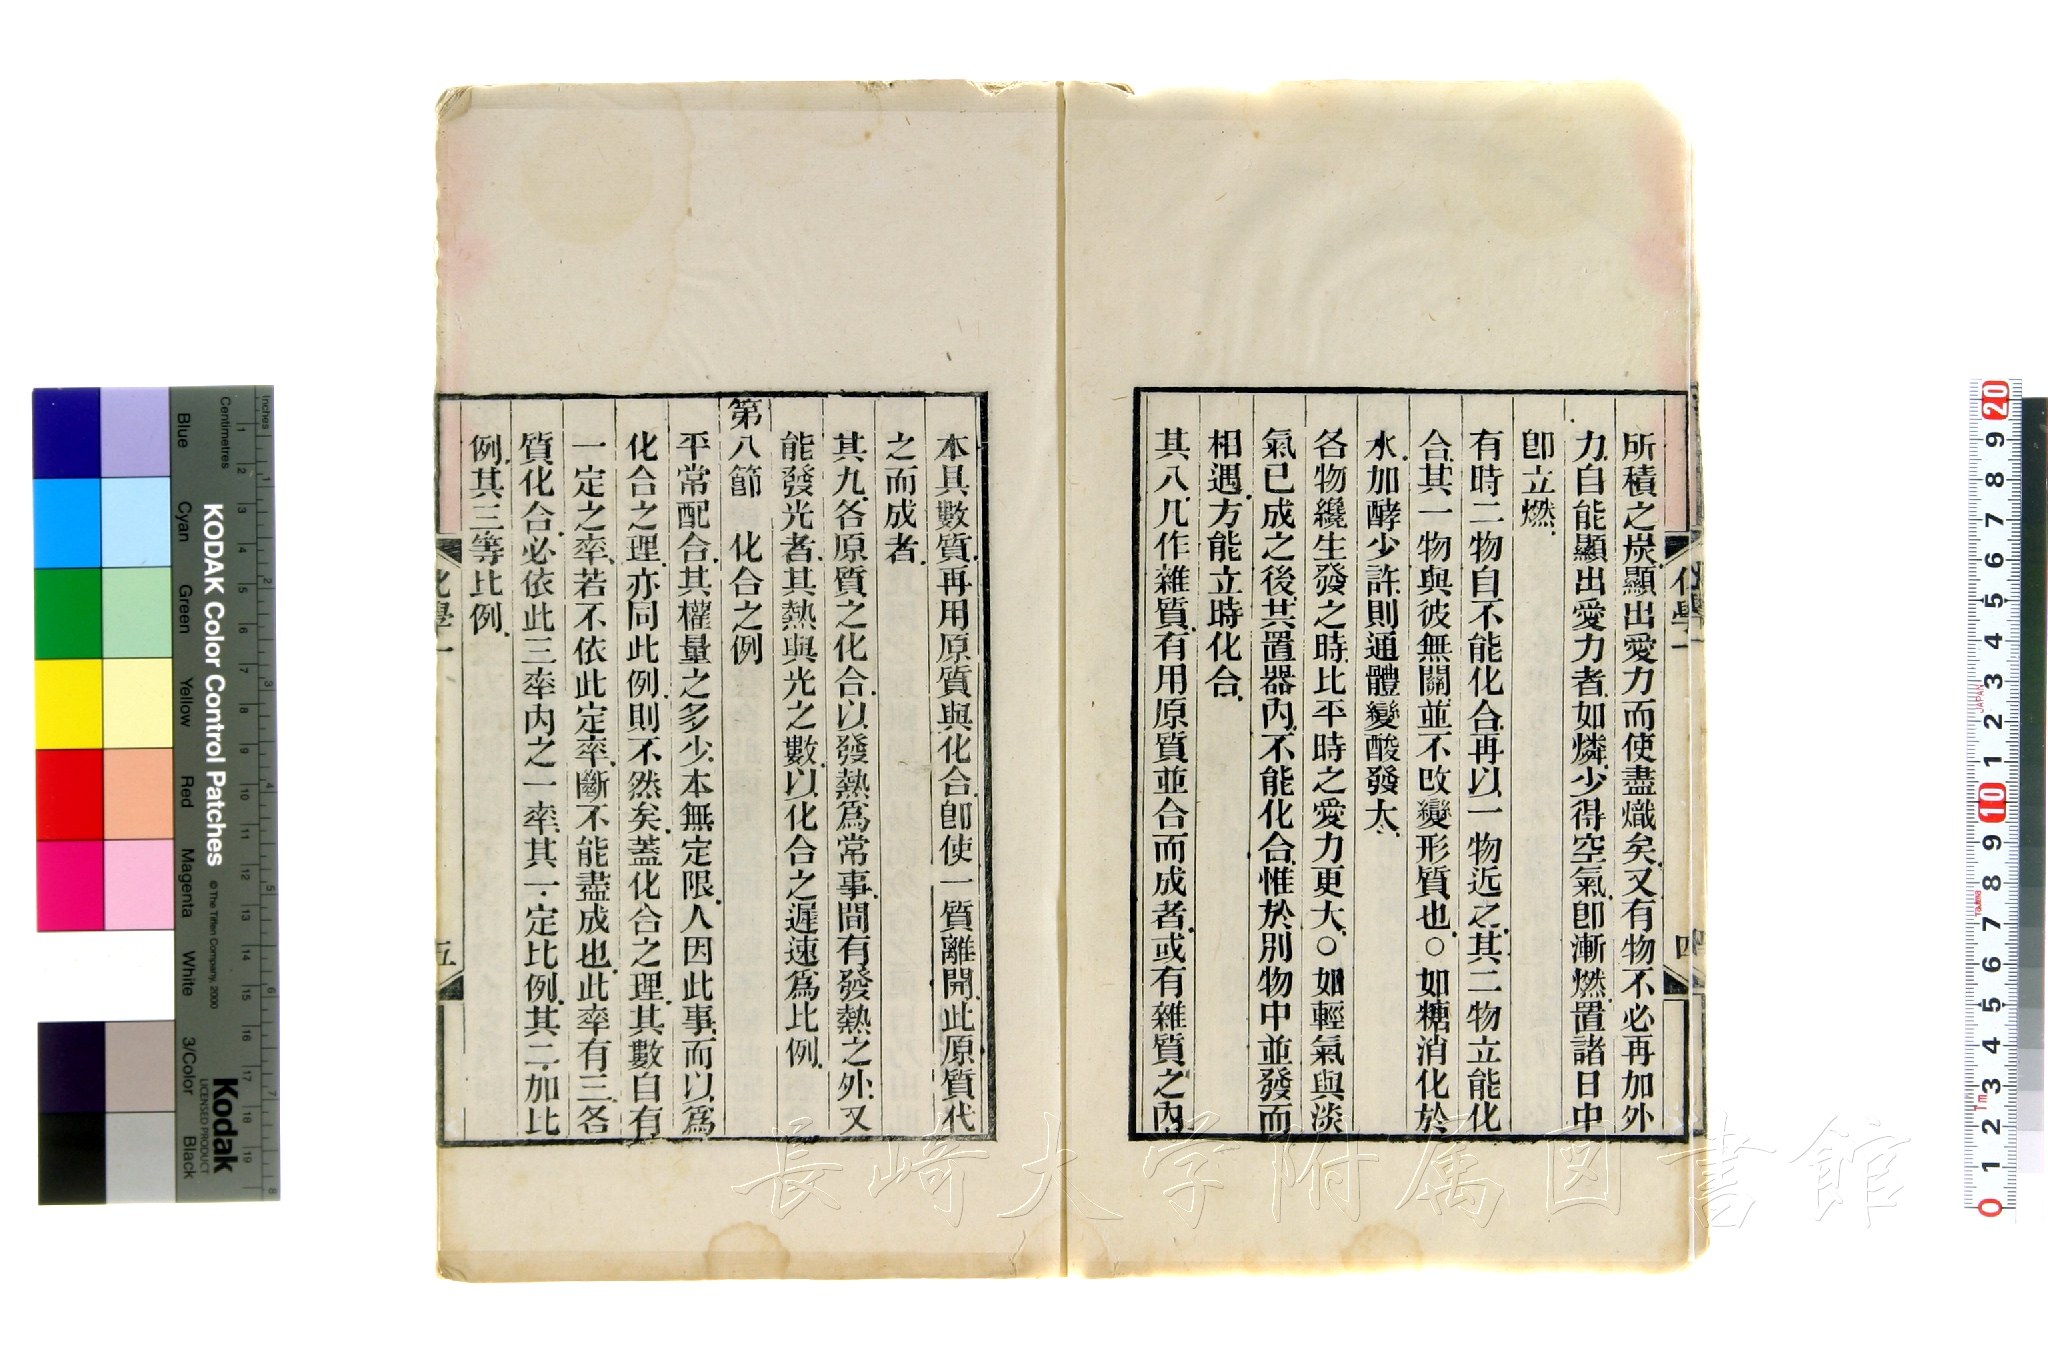 所積之炭、顯出愛力而使盡熾矣、又有物不必再加外
力、自能顯出愛力者、如燐、少得空氣、卽漸燃、置諸日中
卽立燃、
有時二物自不能化合、再以一物近之、其二物立能化
合、其一物與彼無關、並不改變形質也、○如糖消化於
水、加酵少許、則通體變酸發大、
各物纔生發之時、比平時之愛力更大、○如輕氣與淡
氣已成之後、共置器內、不能化合、惟於別物中並發而
相遇、方能立時化合、
其八、凡作雜質、有用原質並合而成者、或有雜質之內
化學一
四
本具數質、再用原質與化合、卽使一質離開、此原質代
之而成者、
其九、各原質之化合、以發熱爲常事、間有發熱之外、又
能發光者、其熱與光之數、以化合之遲速爲比例、
第八節　化合之例
平常配合、其權量之多少、本無定限、人因此事、而以爲
化合之理、亦同此例、則不然矣、蓋化合之理、其數自有
一定之率、若不依此定率、斷不能盡成也、此率有三、各
質化合、必依此三率內之一率、其一、定比例、其二、加比
例、其三等比例、
化學一
五
長崎大学附属図書館
KODAK Color Control Patches
© The Tiffen Company, 2000
Kodak
LICENSED PRODUCT
Inches
Centimetres
Blue
Cyan
Green
Yellow
Red
Magenta
White
3/Color
Black
1 2 3 4 5 6 7 8 9 10 11 12 13 14 15 16 17 18 19
1 2 3 4 5 6 7 8
20 9 8 7 6 5 4 3 2 1 10 9 8 7 6 5 4 3 2 1 0
JAPAN
Tajima